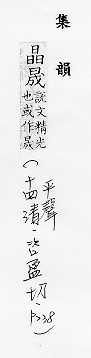 集韻
晶晟說文精光
也或作晟
(平聲
十四清、咨盈切、P238)